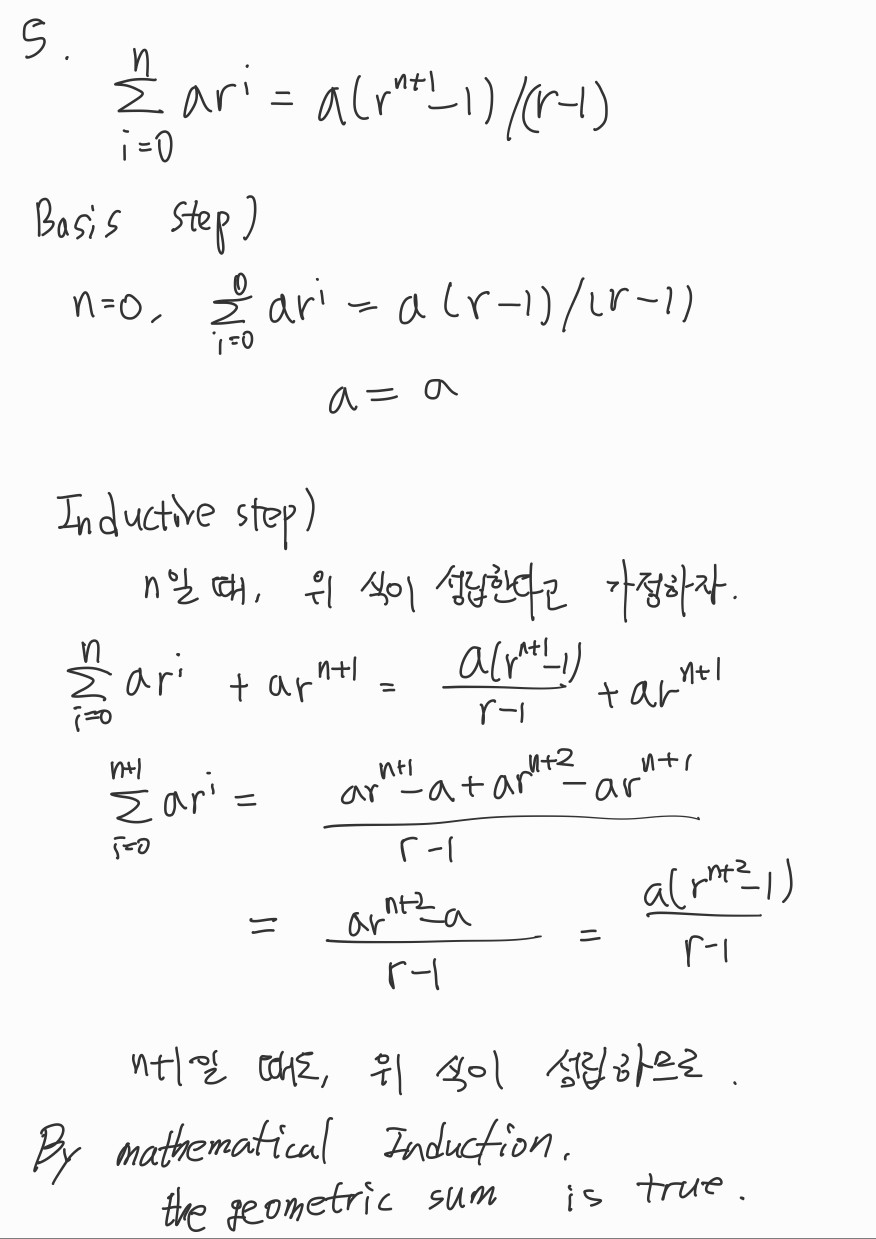 5.
∑_{i=0}^{n} ar^i = a(r^{n+1}-1)/(r-1)
Basis step)
n=0, ∑_{i=0}^{0} ar^i = a(r-1)/(r-1)
a = a
Inductive step)
n일 때, 위 식이 성립한다고 가정하자.
∑_{i=0}^{n} ar^i + ar^{n+1} = \frac{a(r^{n+1}-1)}{r-1} + ar^{n+1}
∑_{i=0}^{n+1} ar^i = \frac{ar^{n+1}-a+ar^{n+2}-ar^{n+1}}{r-1}
= \frac{ar^{n+2}-a}{r-1} = \frac{a(r^{n+2}-1)}{r-1}
n+1일 때도, 위 식이 성립하므로.
By mathematical Induction.
the geometric sum is true.